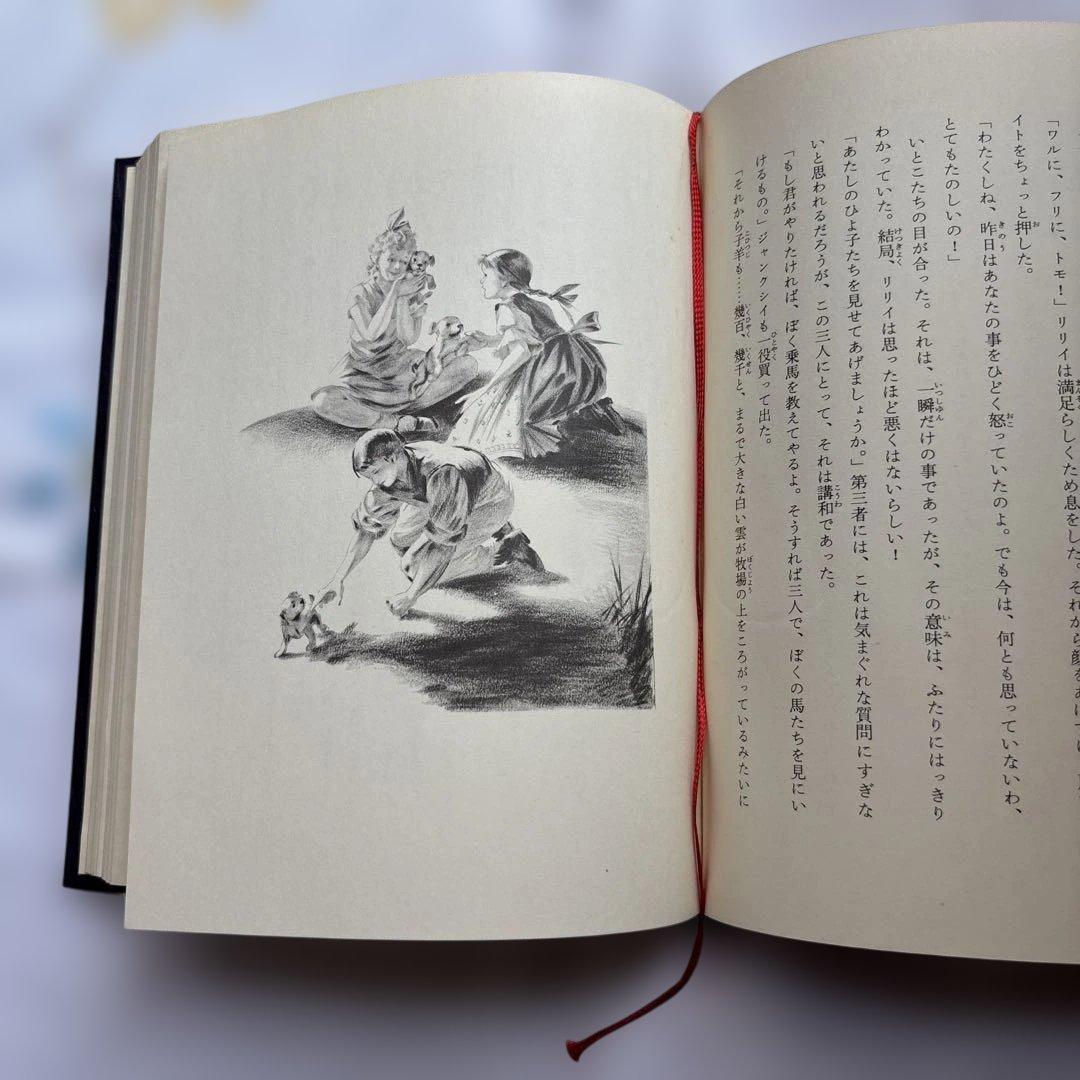 「ワルに、フリに、トモ！」リリイは満足らしくため息をした。それから顔をあげ
イトをちょっと押した。
「わたくしね、昨日はあなたの事をひどく怒っていたのよ。でも今は、何とも思っていないわ、
とてもたのしいの！」
いとこたちの目が合った。それは、一瞬だけの事であったが、その意味は、ふたりにはっきり
わかっていた。結局、リリイは思ったほど悪くはないらしい！
「あたしのひよ子たちを見せてあげましょうか。」第三者には、これは気まぐれな質問にすぎな
いと思われるだろうが、この三人にとって、それは講和であった。
「もし君がやりたければ、ぼく乗馬を教えてやるよ。そうすれば三人で、ぼくの馬たちを見にい
けるもの。」ジャンクシイも一役買って出た。
「それから子羊も……幾百、幾千と、まるで大きな白い雲が牧場の上をころがっているみたいに